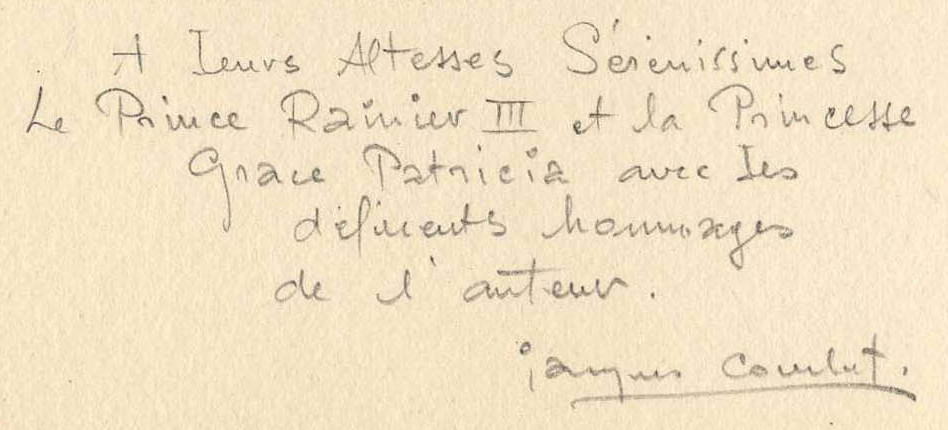 A Leurs Altesses Sérénissimes
Le Prince Rainier III et la Princesse
Grace Patricia avec les
déférents hommages
de l'auteur.
Jacques